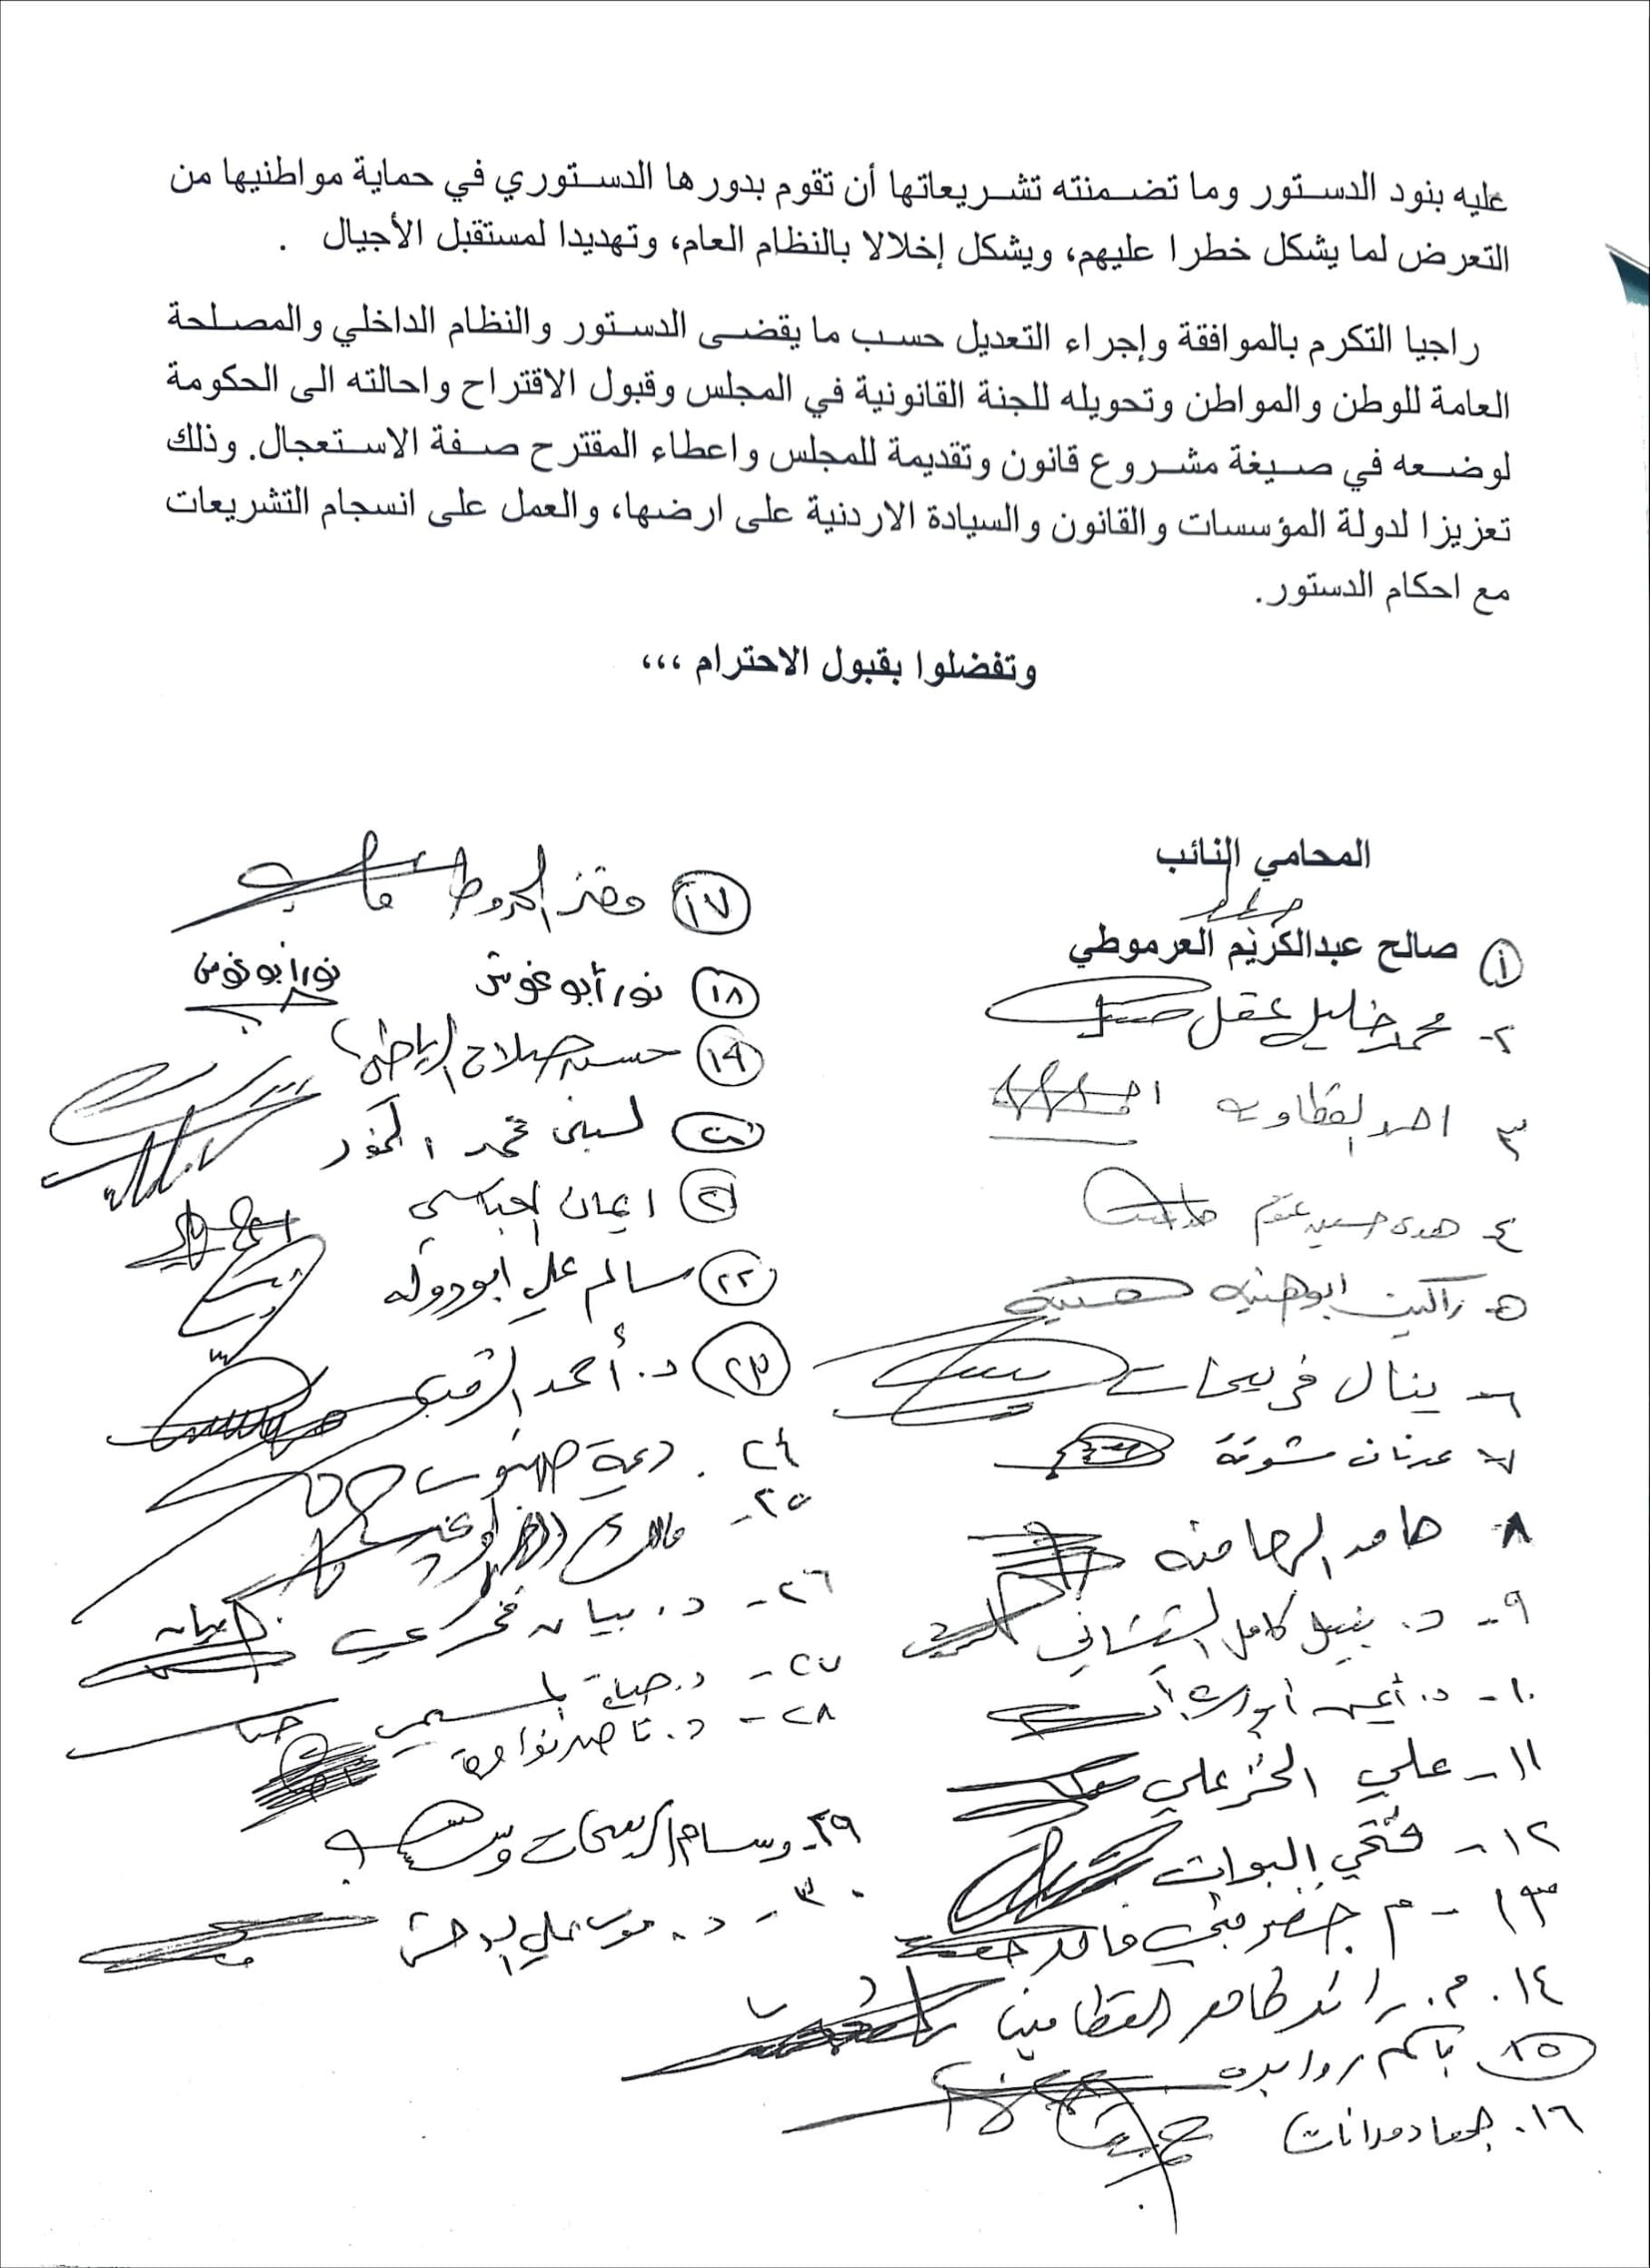 عليه بنود الدستور وما تضمنته تشريعاتها أن تقوم بدورها الدستوري في حماية مواطنيها من
التعرض لما يشكل خطرا عليهم، ويشكل إخلالا بالنظام العام، وتهديدا لمستقبل الأجيال .
راجيا التكرم بالموافقة وإجراء التعديل حسب ما يقضى الدستور والنظام الداخلي والمصلحة
العامة للوطن والمواطن وتحويله للجنة القانونية في المجلس وقبول الاقتراح واحالته الى الحكومة
لوضعه في صيغة مشروع قانون وتقديمة للمجلس واعطاء المقترح صفة الاستعجال. وذلك
تعزيزا لدولة المؤسسات والقانون والسيادة الاردنية على ارضها، والعمل على انسجام التشريعات
مع احكام الدستور.
وتفضلوا بقبول الاحترام ،،،
المحامي النائب
١ صالح عبدالكريم العرموطي
٢- محمد خليل عقل
٣ احمد القطاونه
٤- هدى حسين عتوم
٥- راكين ابوهنيه
٦- ينال فريحات
٧- عدنان مشوقة
٨- حامد الرحامنه
٩- د. نبيل كامل الشيشاني
١٠- د. أيمن أبو
١١- علي الخزعلي
١٢- فتحي البوات
١٣- م خضر
١٤. م. رائد القطامين
١٥ باسم روابدة
١٦. جهاد مدانات
١٧ معتز
١٨ نور أبو غوش نور أبو غوش
١٩ حسين صلاح الرياطي
٢٠ لبنى محمد النمور
٢١ ايمان العباسي
٢٢ سالم علي ابودولة
٢٣ د. أحمد الرقب
٢٤. ديمة طهبوب
٢٥-
٢٦- د. بيان فخري
٢٧- د. حياة المسيمي
٢٨- د. ناصر نواصرة
٢٩- وسام اربيحات
٣٠- د. موسى علي الوحش